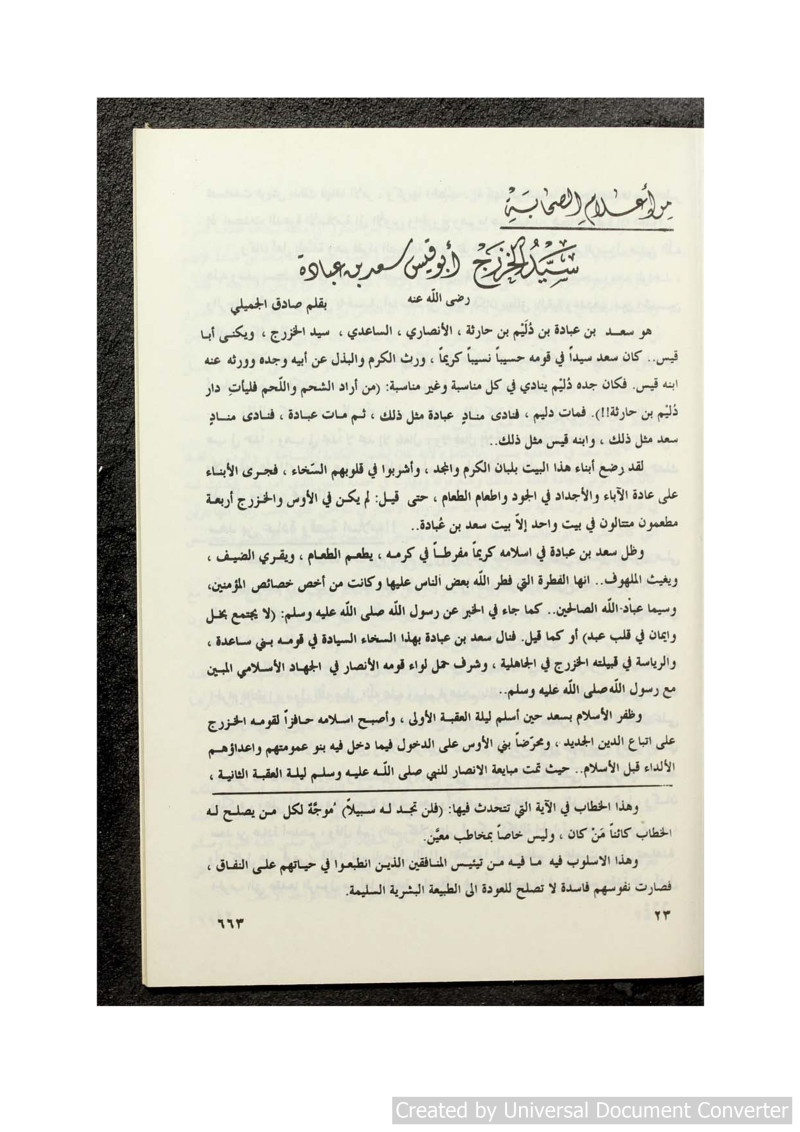 من أعلام الصحابة
سيد الخزرج أبو قيس سعد بن عبادة
رضى اللّه عنه
بقلم صادق الجميلي
هو سعد بن عبادة بن دُلَيْم بن حارثة ، الأنصاري ، الساعدي ، سيد الخزرج ، ويكنى أبا
قيس.. كان سعد سيداً في قومه حسيباً نسيباً كريماً ، ورث الكرم والبذل عن أبيه وجده وورثه عنه
ابنه قيس. فكان جده دُليْم ينادي في كل مناسبة وغير مناسبة: (من أراد الشحم واللّحم فليأتِ دار
دُليْم بن حارثة!!). فمات دليم ، فنادى منادٍ عبادة مثل ذلك ، ثم مات عبادة ، فنادى منادٍ
سعد مثل ذلك ، وابنه قيس مثل ذلك..
لقد رضع أبناء هذا البيت بلبان الكرم والمجد ، وأشربوا في قلوبهم السّخاء ، فجرى الأبناء
على عادة الآباء والأجداد في الجود واطعام الطعام ، حتى قيل: لم يكن في الأوس والخزرج أربعة
مطعمون متتالون في بيت واحد إلاّ بيت سعد بن عُبادة..
وظل سعد بن عبادة في اسلامه كريماً مفرطاً في كرمه ، يطعم الطعام ، ويقري الضيف ،
ويغيث الملهوف.. انها الفطرة التي فطر اللّه بعض الناس عليها وكانت من أخص خصائص المؤمنين،
وسيما عباد اللّه الصالحين.. كما جاء في الخبر عن رسول اللّه صلى اللّه عليه وسلم: (لا يجتمع بخل
وايمان في قلب عبد) أو كما قيل. فنال سعد بن عبادة بهذا السخاء السيادة في قومه بني ساعدة ،
والرياسة في قبيلته الخزرج في الجاهلية ، وشرف حمل لواء قومه الأنصار في الجهاد الأسلامي المبين
مع رسول اللّه صلى اللّه عليه وسلم..
وظفر الأسلام بسعد حين أسلم ليلة العقبة الأولى ، وأصبح اسلامه حافزاً لقومه الخزرج
على اتباع الدين الجديد ، ومحرّضاً بني الأوس على الدخول فيما دخل فيه بنو عمومتهم واعداؤهم
الألداء قبل الأسلام.. حيث تمت مبايعة الانصار للنبي صلى اللّه عليه وسلم ليلة العقبة الثانية ،
وهذا الخطاب في الآية التي تتحدث فيها: (فلن تجد له سبيلاً) مُوجَّهٌ لكل من يصلح له
الخطاب كائناً مَنْ كان ، وليس خاصاً بمخاطب معيَّن.
وهذا الاسلوب فيه ما فيه من تيئيس المنافقين الذين انطبعوا في حياتهم على النفاق ،
فصارت نفوسهم فاسدة لا تصلح للعودة الى الطبيعة البشرية السليمة.
٢٣
٦٦٣
Created by Universal Document Converter